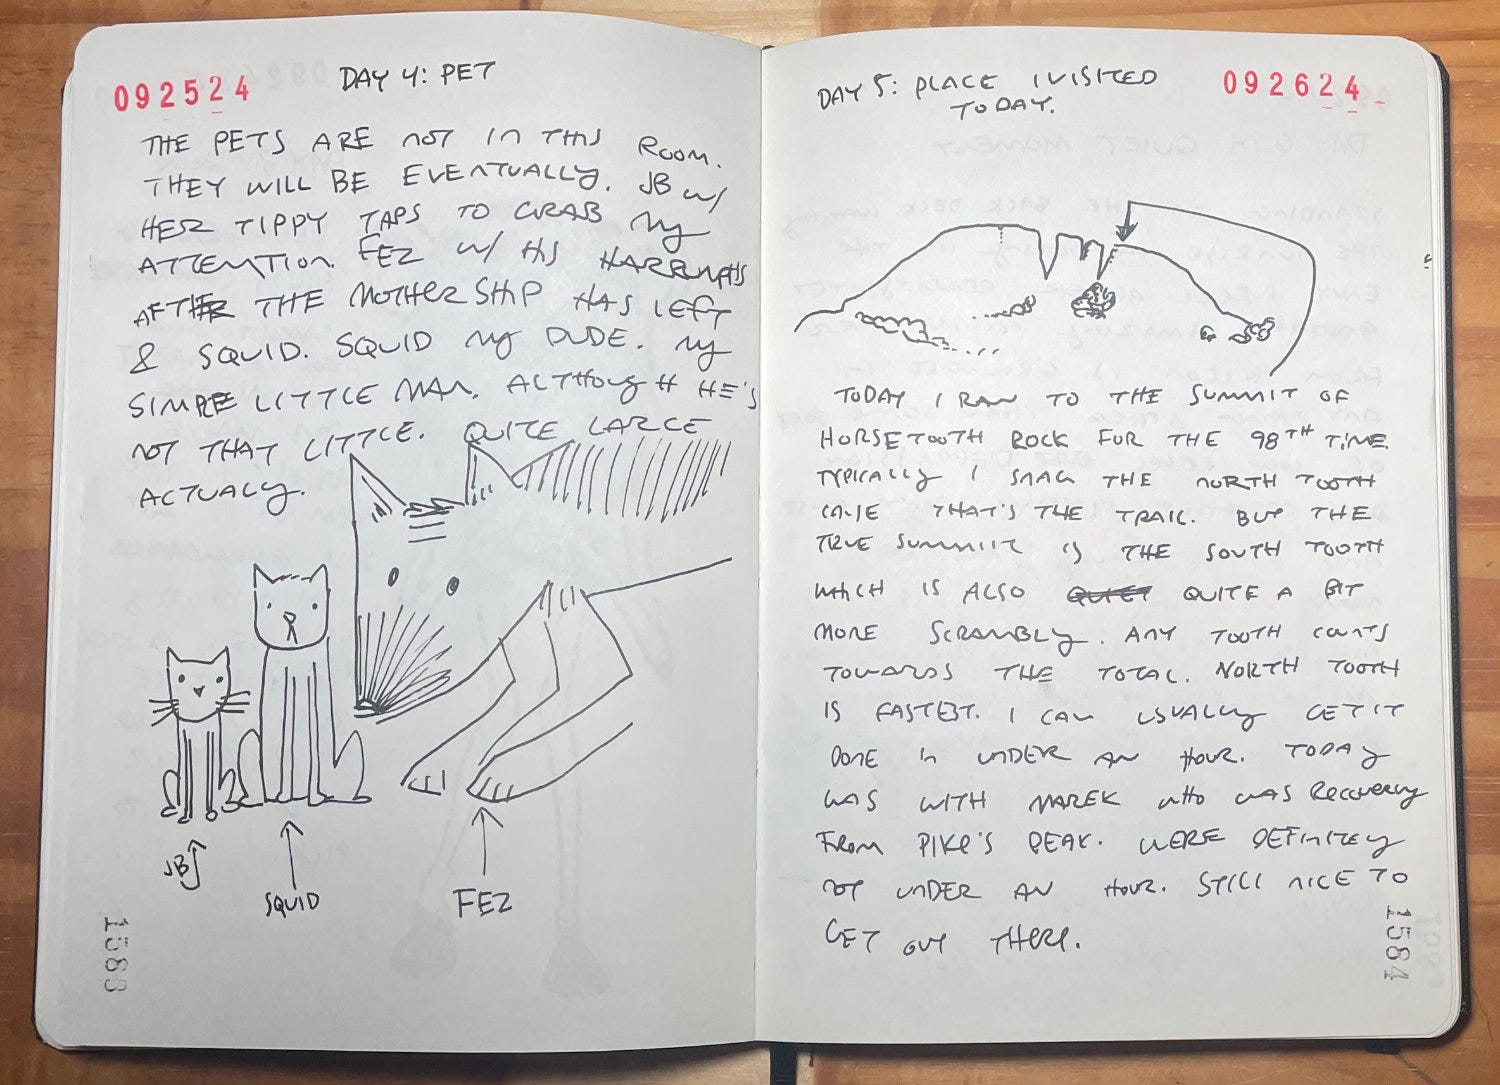 092524
DAY 4: PET
THE PETS ARE NOT IN THIS ROOM.
THEY WILL BE EVENTUALLY. JB W/
HER TIPPY TAPS TO GRAB MY
ATTENTION. FEZ W/ HIS HARRUMPHS
AFTER THE MOTHERSHIP HAS LEFT
& SQUID. SQUID MY DUDE. MY
SIMPLE LITTLE MAN. ALTHOUGH HE'S
NOT THAT LITTLE. QUITE LARGE
ACTUALY.
JB
SQUID
FEZ
1583
DAY 5: PLACE I VISITED
TODAY.
092624
TODAY I RAN TO THE SUMMIT OF
HORSETOOTH ROCK FOR THE 98TH TIME.
TYPICALLY I SNAG THE NORTH TOOTH
CAUSE THAT'S THE TRAIL. BUT THE
TRUE SUMMIT IS THE SOUTH TOOTH
WHICH IS ALSO QUIET QUITE A BIT
MORE SCRAMBLY. ANY TOOTH COUNTS
TOWARDS THE TOTAL. NORTH TOOTH
IS FASTEST. I CAN USUALLY GET IT
DONE IN UNDER AN HOUR. TODAY
WAS WITH MAREK WHO WAS RECOVERY
FROM PIKE'S PEAK. WERE DEFINITELY
NOT UNDER AN HOUR. STILL NICE TO
GET OUT THERE.
1584